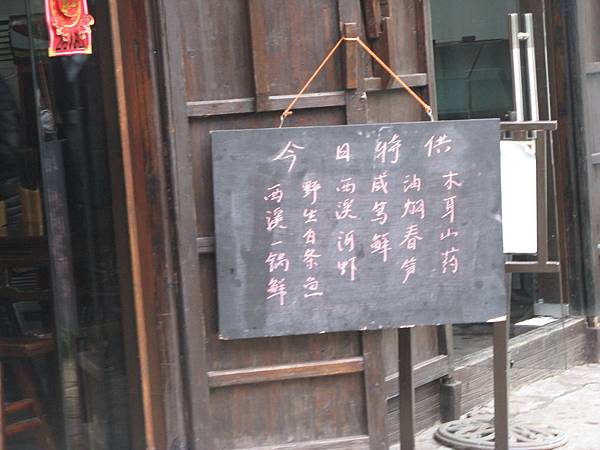 今日特供
木耳山药
油焖春笋
咸笃鲜
西溪河虾
野生白条鱼
西溪一锅鲜